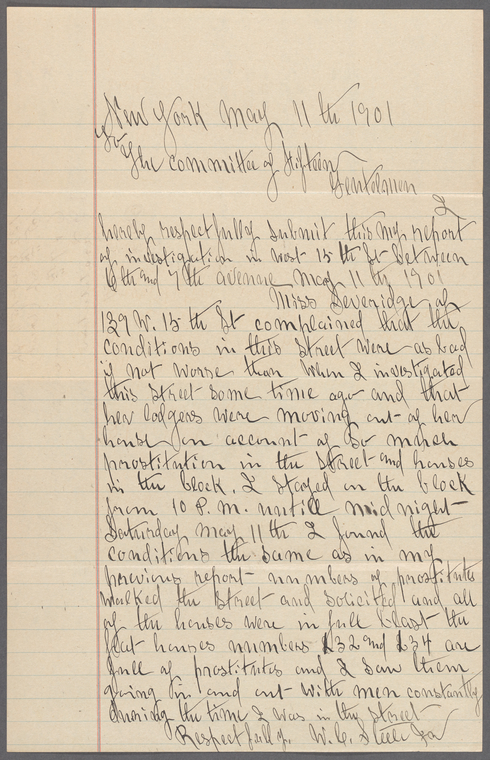 New York May 11th 1901
To
The committee of Fifteen
Gentelmen
I
hereby respectfully submit this my report
of investigation in west 15th St between
6th and 7th avenue May 11th 1901
Miss Beveridge of
139 W. 15th St complained that the
conditions in this Street were as bad
if not worse than when I investigated
this street some time ago and that
her lodgers were moving out of her
house on account of so much
prostitution in the Street and houses
in the block. I stayed on the block
from 10 P.M. untill mid night
Saturday May 11th I found the
conditions the same as in my
previous report numbers of prostitutes
walked the street and solicited and all
of the houses were in full blast the
flat houses numbers 132 and 134 are
full of prostitutes and I saw them
going in and out with men constantly
during the time I was in the street
Respectfully. W. C. Steele Jr